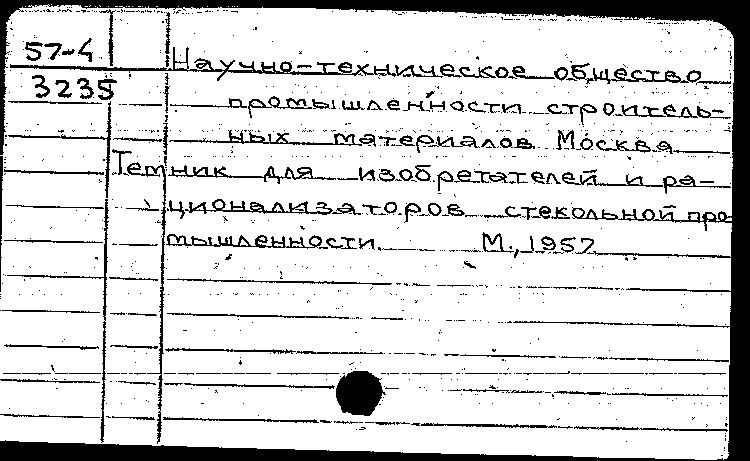 57-4
3235
Научно-техническое общество
промышленности строитель-
ных материалов Москва
Темник для изобретателей и ра-
ционализаторов стекольной про
мышленности. М., 1957